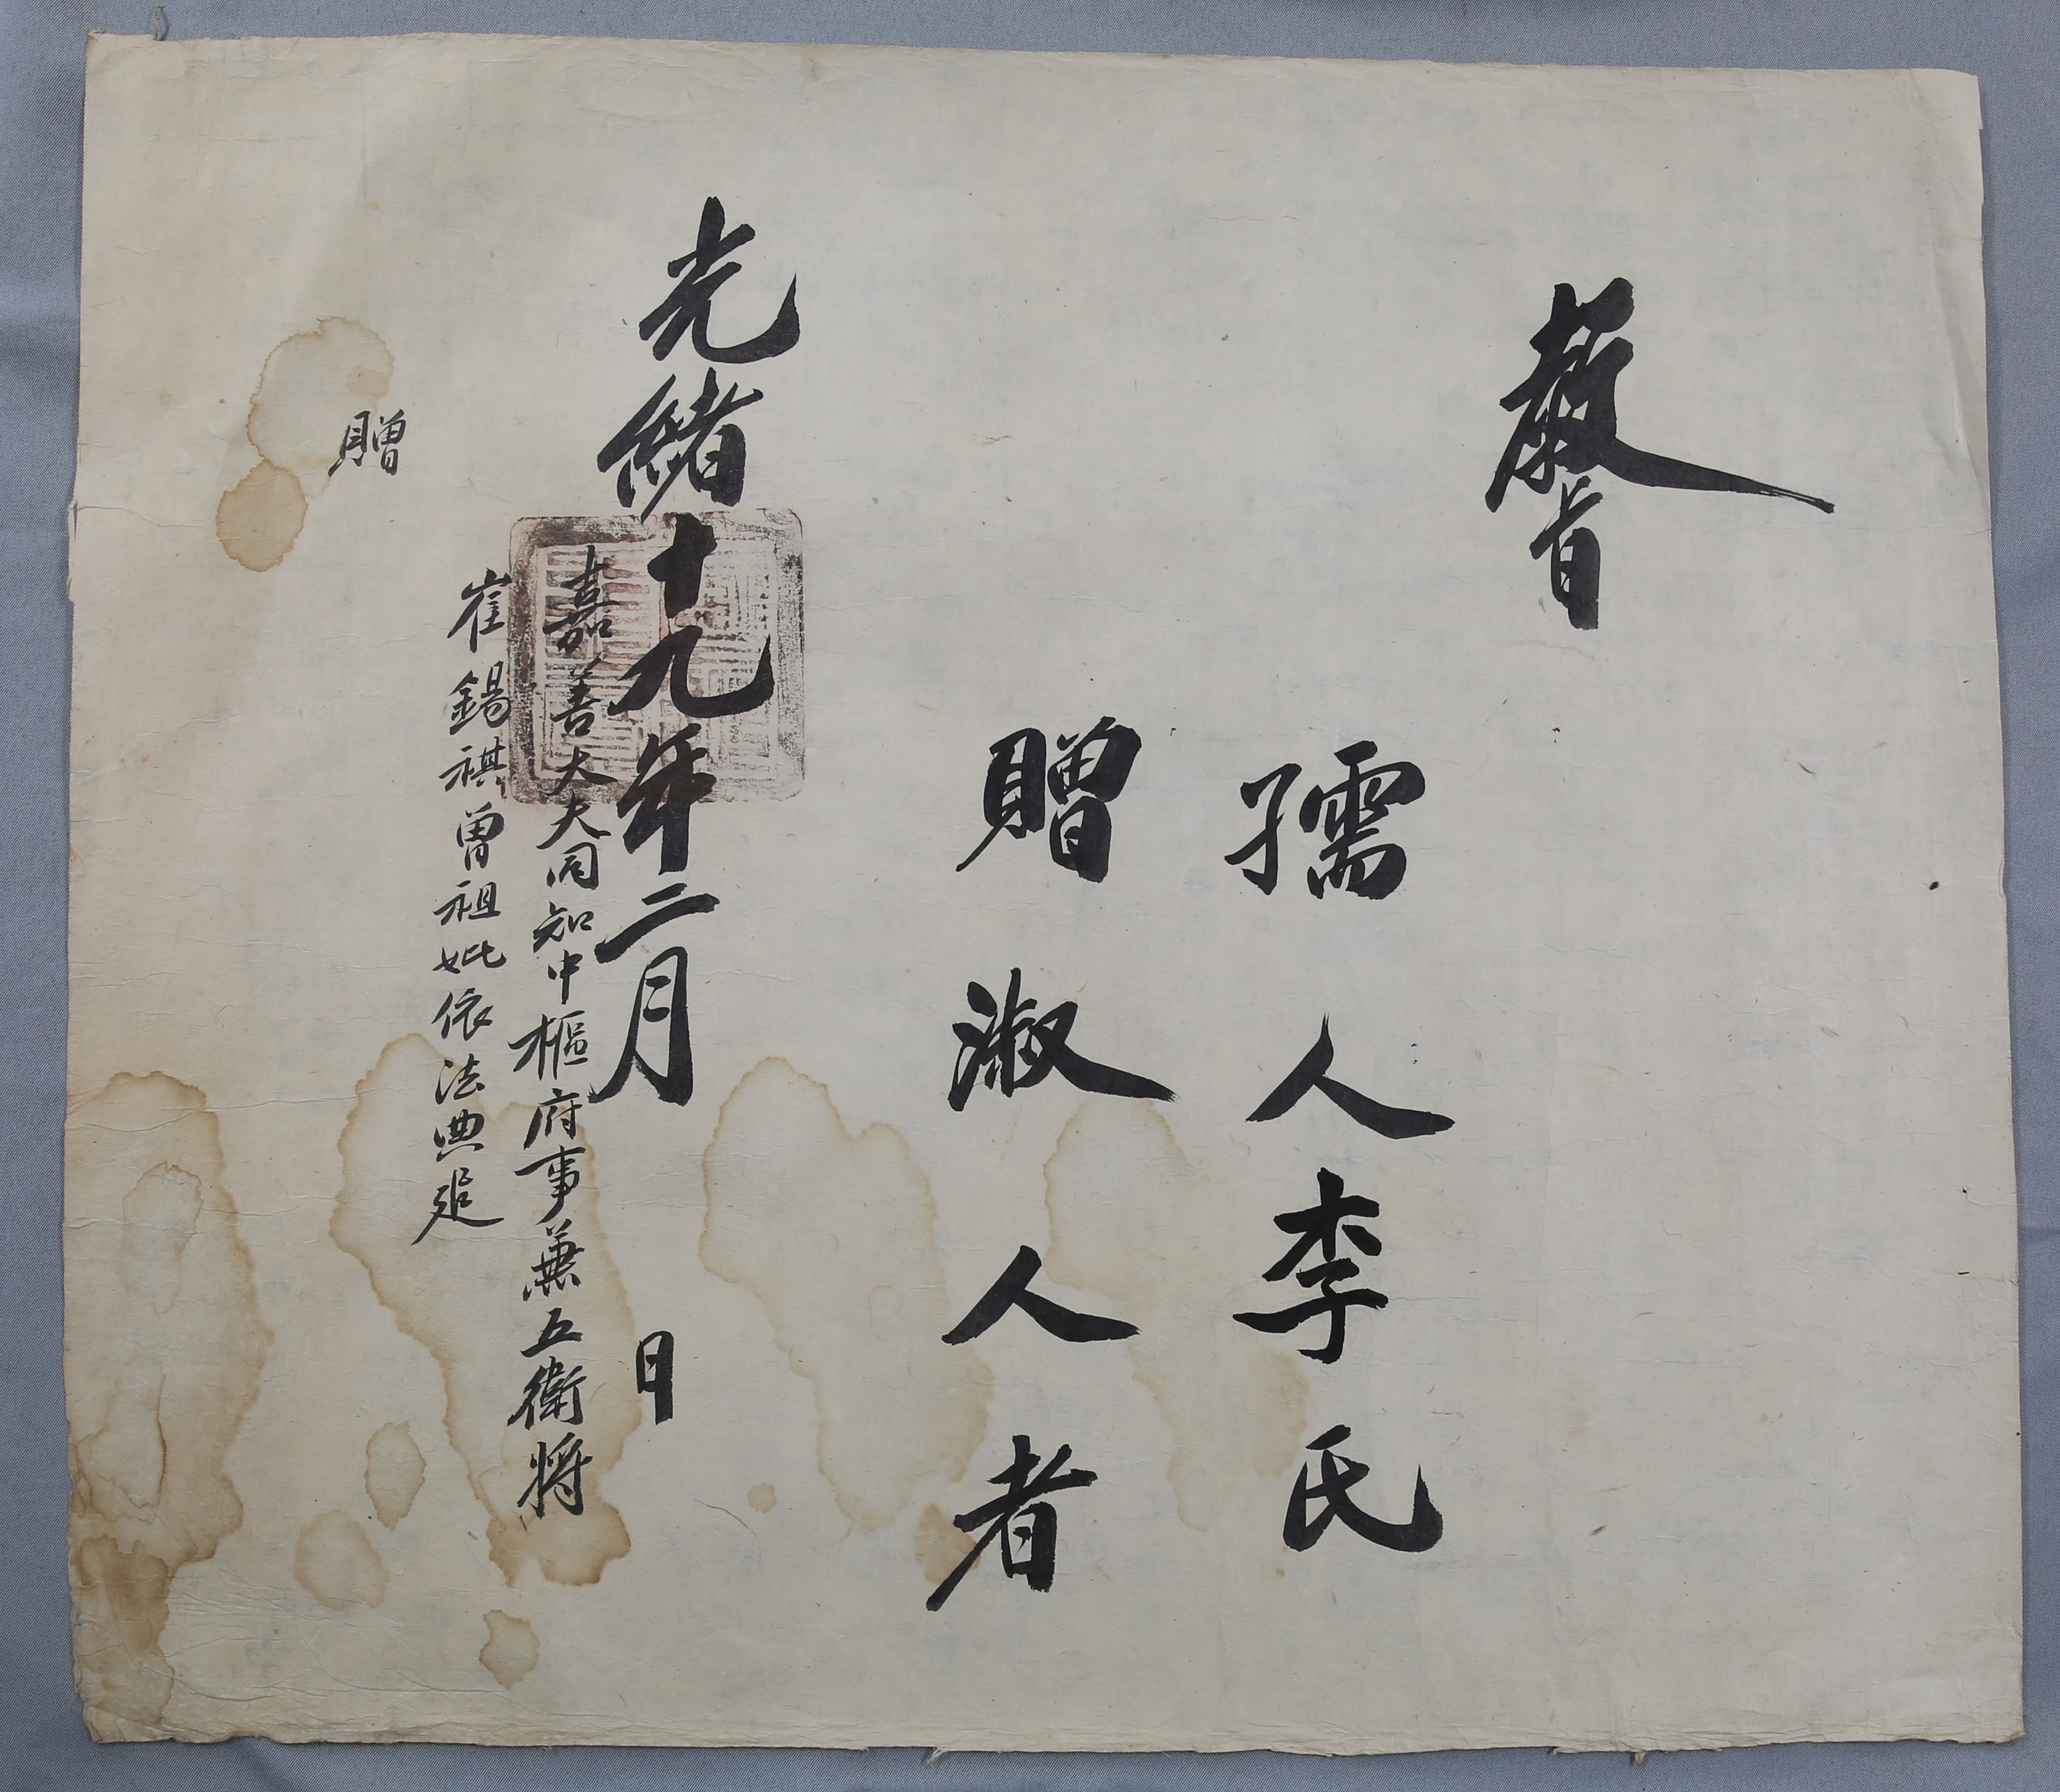 敎旨
孺人李氏
贈淑人者
光緒十九年二月 日
嘉善大夫同知中樞府事兼五衛將
崔錫祺曽祖妣依法典追
贈